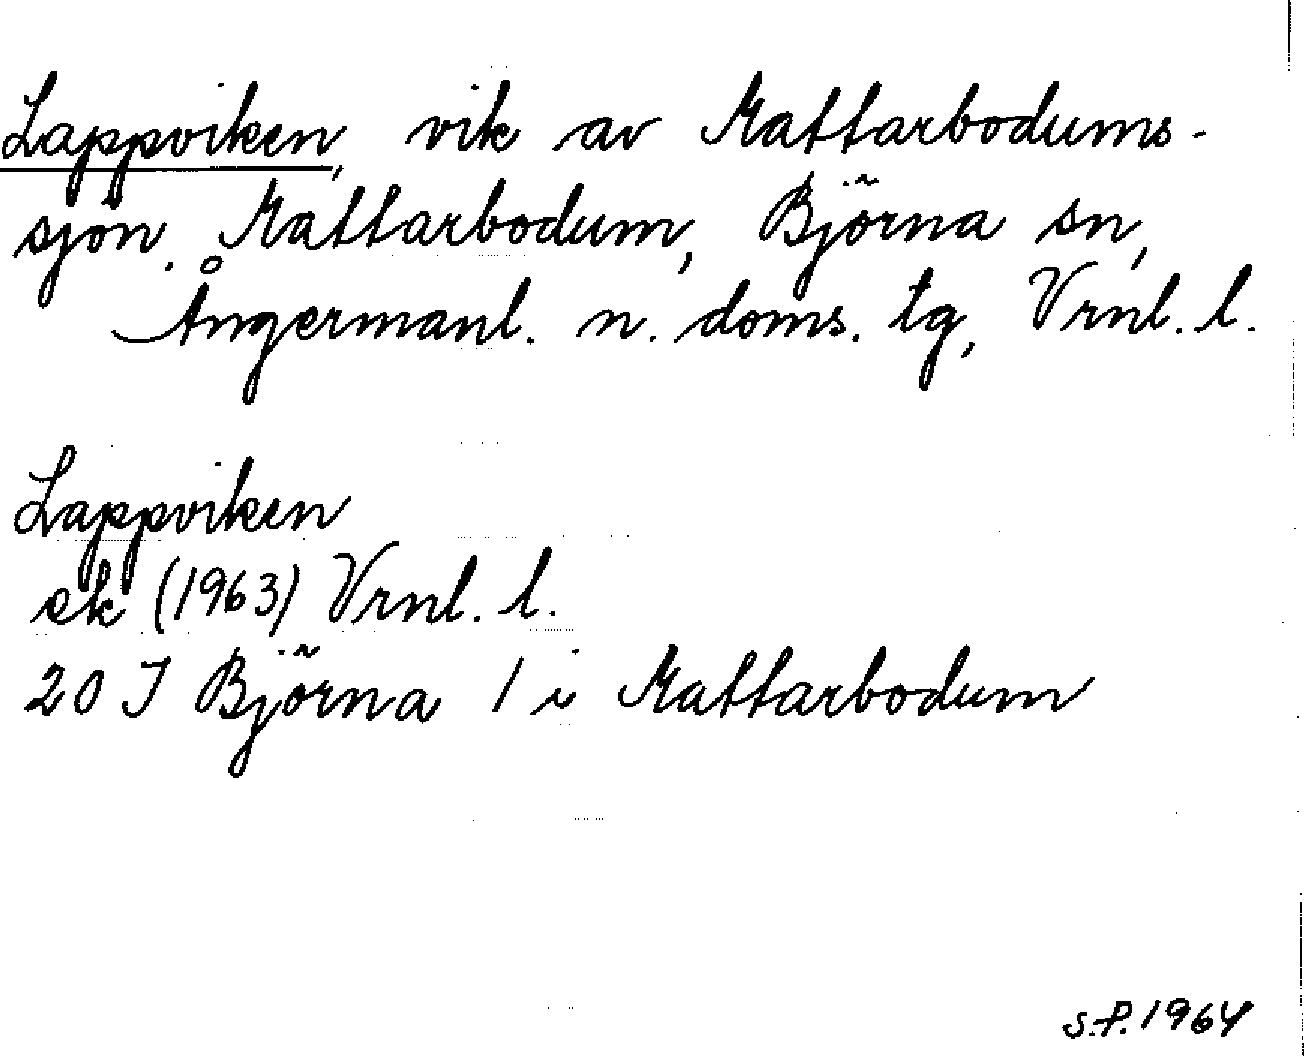 Lappviken, vik av Kattarbodums-
sjön. Kattarbodum, Björna sn,
Ångermanl. n. doms. tg, Vrnl. l.
Lappviken
ek (1963) Vrnl. l.
20 I Björna 1 i Kattarbodum
S.P. 1964